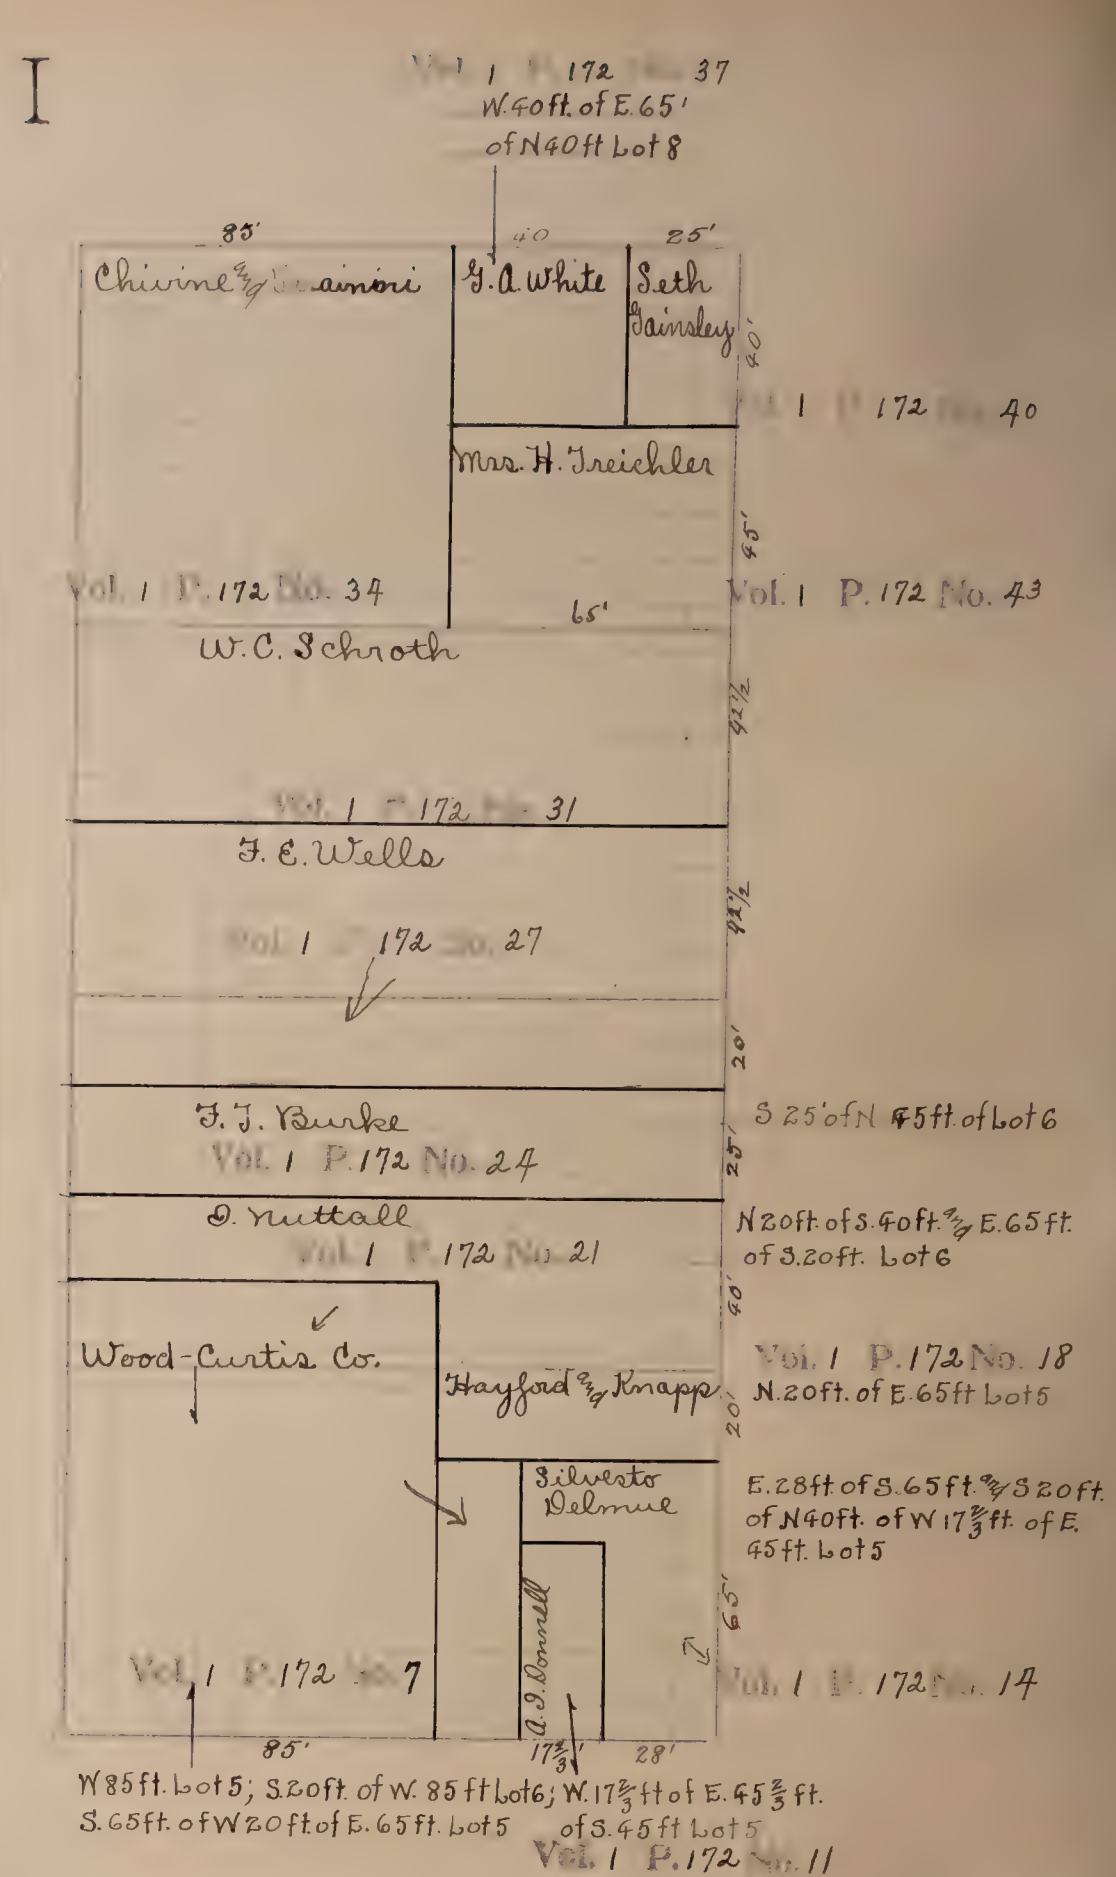 I
Vol. 1 P. 172 No. 37
W. 40 ft. of E. 65'
of N 40 ft Lot 8
85' 40 25'
Chivine and
G. A. White
Seth
Gainsley
40'
Vol. 1 P. 172 No. 40
Mrs. H. Treichler
45'
Vol. 1 P. 172 No. 34
65'
Vol. 1 P. 172 No. 43
W. C. Schroth
42 1/2
Vol. 1 P. 172 No. 31
F. E. Wells
42 1/2
Vol. 1 P. 172 No. 27
20'
F. J. Burke
S 25' of N 45 ft. of Lot 6
Vol. 1 P. 172 No. 24
25'
D. Nuttall
N 20 ft. of S. 40 ft. and E. 65 ft.
of S. 20 ft. Lot 6
Vol. 1 P. 172 No. 21
40'
Wood-Curtis Co.
Vol. 1 P. 172 No. 18
Hayford and Knapp
N. 20 ft. of E. 65 ft Lot 5
20'
Silvesto
Delmue
E. 28 ft. of S. 65 ft. and S 20 ft.
of N 40 ft. of W 17 2/3 ft. of E.
45 ft. Lot 5
A. J. Donnell
65'
Vol. 1 P. 172 No. 7
Vol. 1 P. 172 No. 14
85' 17 2/3' 28'
W 85 ft. Lot 5; S. 20 ft. of W. 85 ft Lot 6;
S. 65 ft. of W 20 ft of E. 65 ft. Lot 5
W. 17 2/3 ft of E. 45 2/3 ft.
of S. 45 ft Lot 5
Vol. 1 P. 172 No. 11